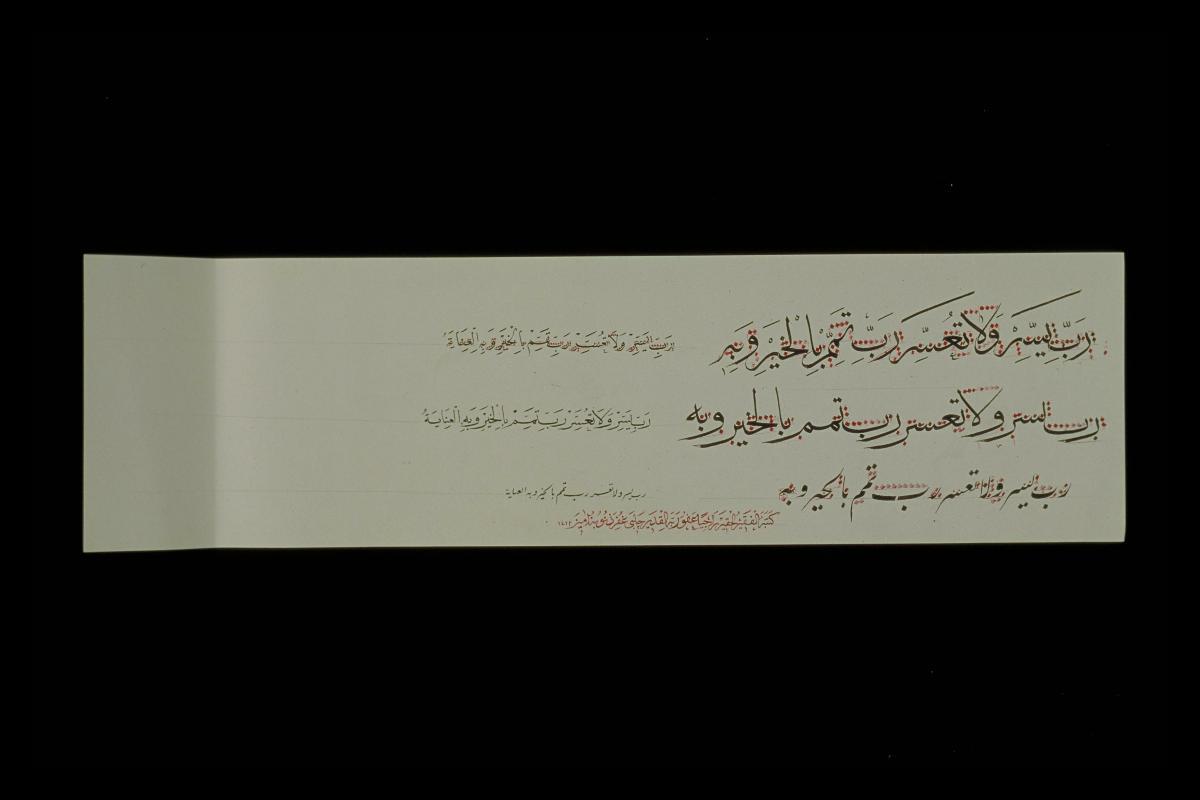 رَبِّ يَسِّرْ وَلَا تُعَسِّرْ رَبِّ تَمِّمْ بِالْخَيْرِ وَبِهِ
رَبِّ يَسِّرْ وَلَا تُعَسِّرْ رَبِّ تَمِّمْ بِالْخَيْرِ وَبِهِ الْعِنَايَةُ
رب يسر ولا تعسر رب تمم بالخير وبه
رَبِّ يَسِّرْ وَلَا تُعَسِّرْ رَبِّ تَمِّمْ بِالْخَيْرِ وَبِهِ الْعِنَايَةُ
رب يسر ولا تعسر رب تمم بالخير وبه
رب يسر ولا تعسر رب تمم بالخير وبه العناية
كتبه الفقير الحقير عفو ربه القدير غفر ذنوبه امين ١٤١٢